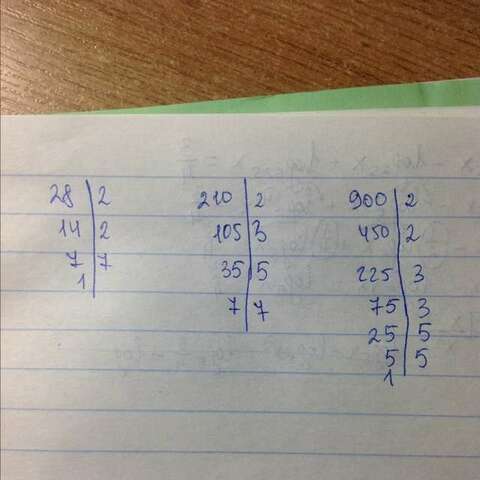 28 | 2
14 | 2
7 | 7
1 |
210 | 2
105 | 3
35 | 5
7 | 7
900 | 2
450 | 2
225 | 3
75 | 3
25 | 5
5 | 5
1 |